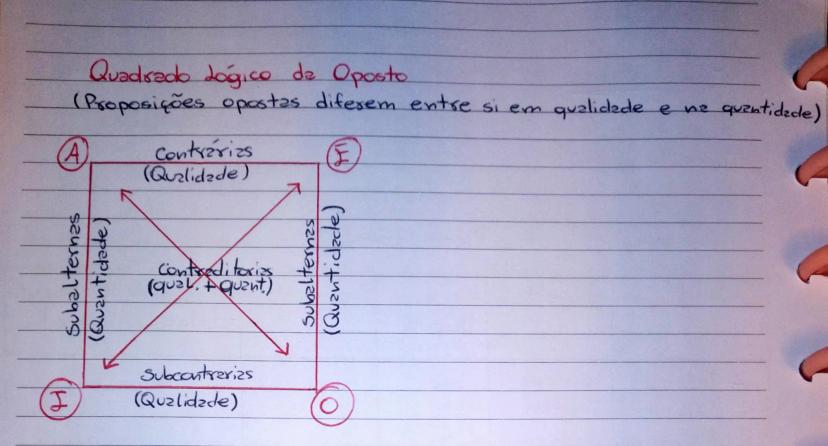 Quadrado Lógico de Oposto
(Proposições opostas diferem entre si em qualidade e na quantidade)
A
Contrárias
E
(Qualidade)
Subalternas
(Quantidade)
Contraditorias
(qual. + quant.)
Subalternas
(Quantidade)
Subcontrarias
I
(Qualidade)
O